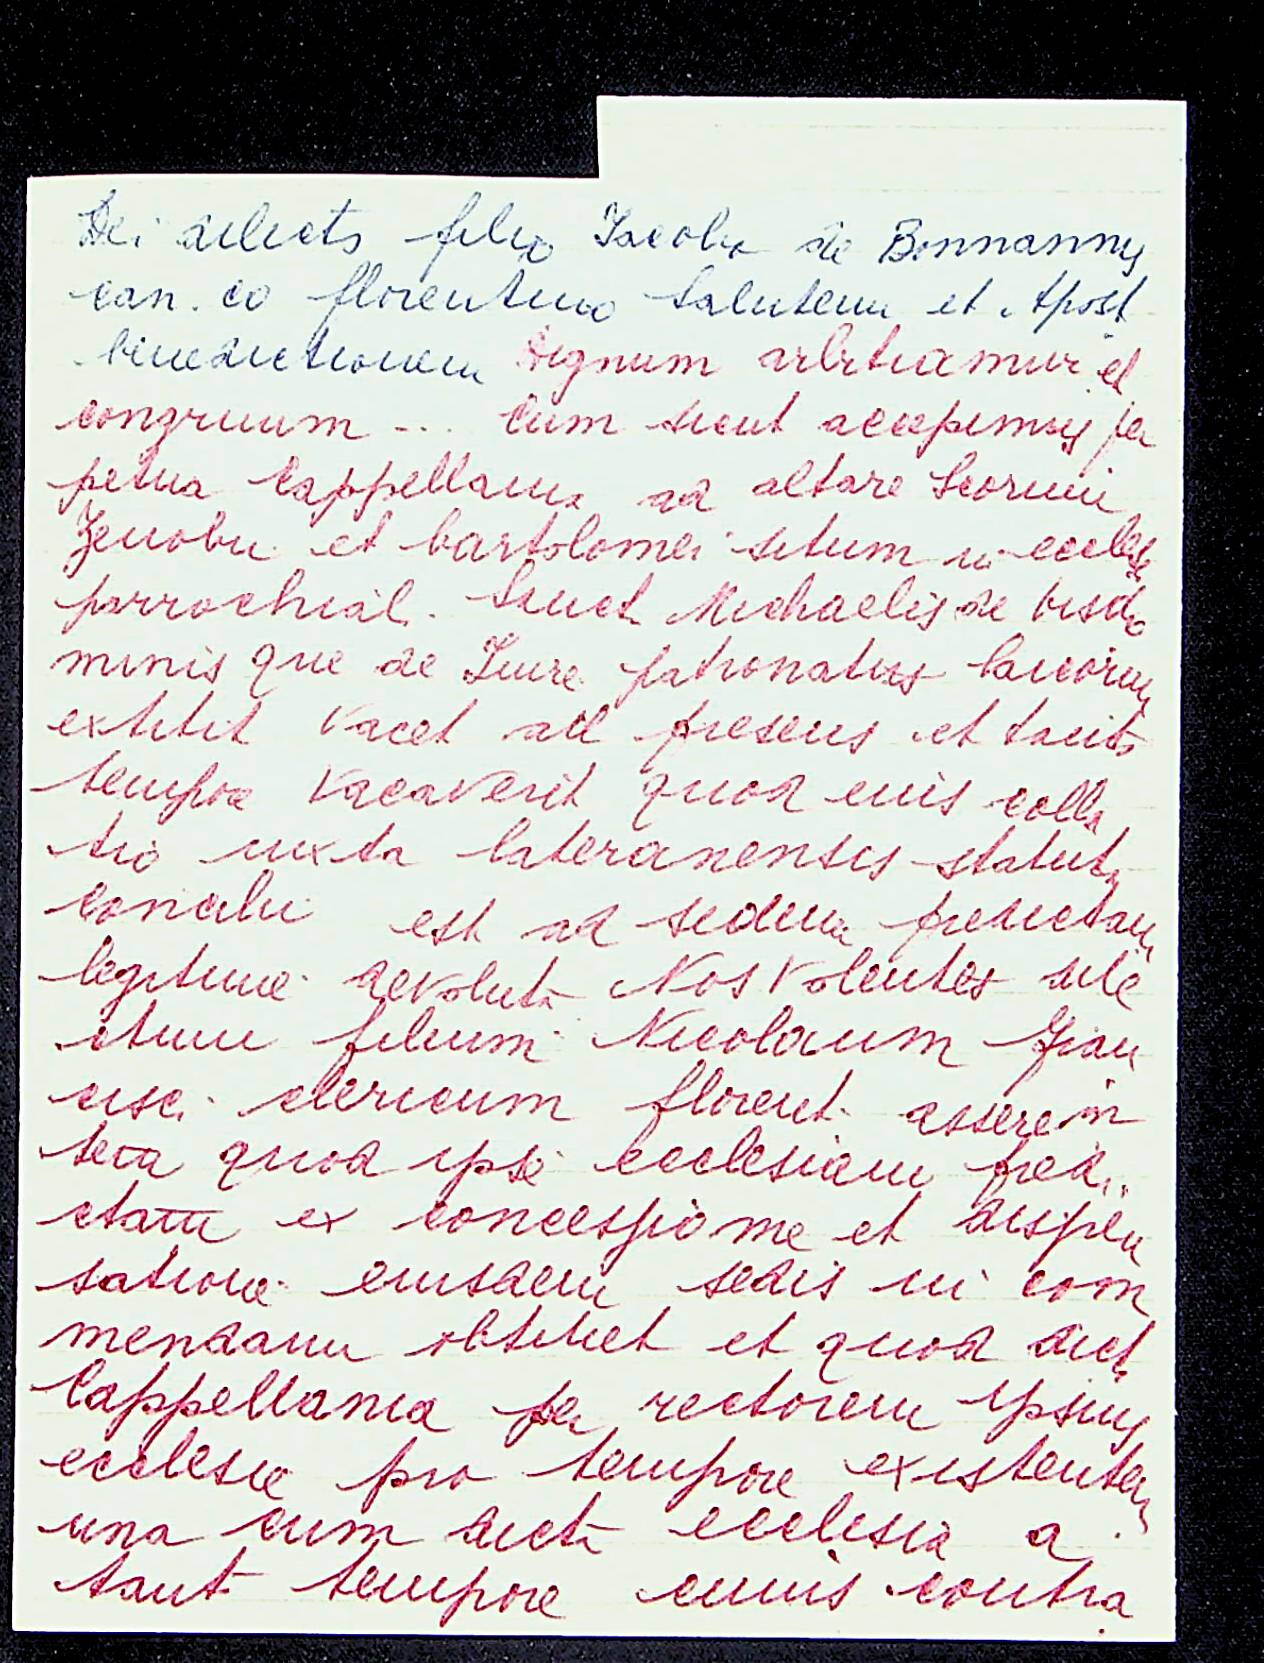 Dei dilecto filio Jacobo de Bonnannys
can. co florentino Salutem et Apost
benedictionem Dignum arbitramur et
congruum ... Cum sicut accepimus per
petua Cappellania ad altare Scorum
Zenobii et bartolomei situm in ecclesia
parrochial. Sanct Michaelis de bisdo
minis que de Jure patronatus laicorum
extitit vacet ad presens et tanto
tempore vacaverit quod eius colla
tio iuxta lateranensis statuta
concilii est ad sedem predictam
legitime devoluta Nos volentes dile
ctum filium Nicolaum Fran
cisci clericum florent. asseren
quod ipse ecclesiam pred..
ctam ex concessione et dispen
satione eiusdem sedis in com
mendam obtinet et quod dict
Cappellania per rectorem ipsius
ecclesie pro tempore existentem
una cum dicta ecclesia a
tant tempore cuius contra